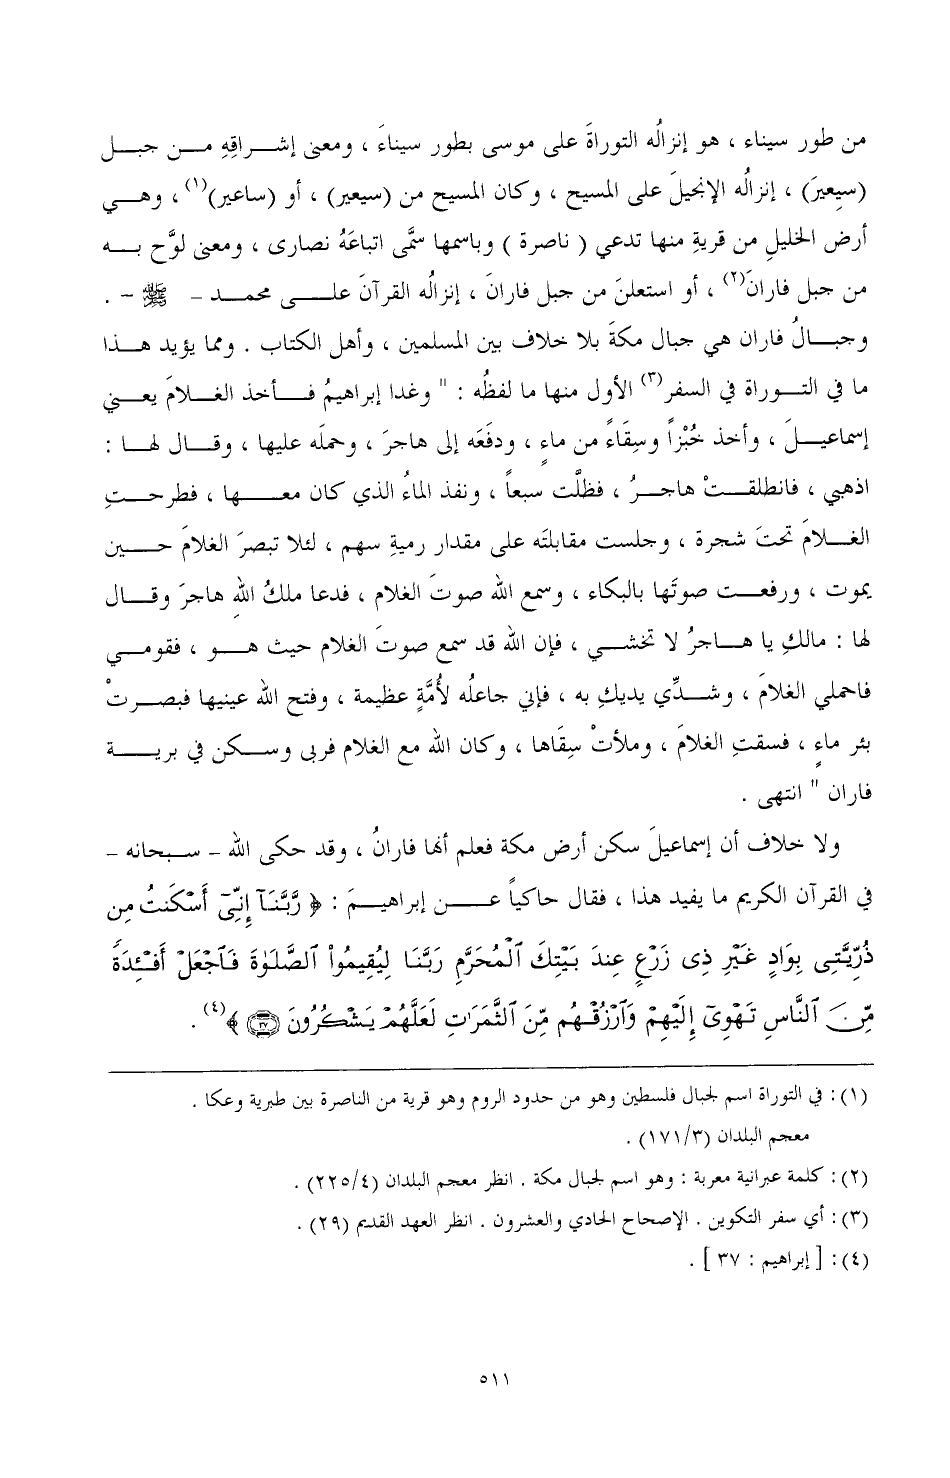 من طور سيناء ، هو إنزالُه التوراةَ على موسى بطور سيناءَ ، ومعنى إشراقِهِ من جبل
(سيعيرَ) ، إنزالُه الإنجيلَ على المسيح ، وكان المسيح من (سيعير) ، أو (ساعير)(١) ، وهي
أرض الخليلِ من قريةِ منها تدعي ( ناصرة ) وباسمها سمَّى اتباعَهُ نصارى ، ومعنى لوَّح به
من جبل فارانَ(٢) ، أو استعلنَ من جبل فارانَ ، إنزالُه القرآنَ على محمد - ﷺ - .
وجبالُ فاران هي جبال مكةَ بلا خلاف بين المسلمين ، وأهل الكتاب . ومما يؤيد هذا
ما في التوراة في السفر(٣) الأول منها ما لفظُه : " وغدا إبراهيمُ فأخذ الغلامَ يعني
إسماعيلَ ، وأخذ خُبْزاً وسِقَاءً من ماءٍ ، ودفَعَه إلى هاجرَ ، وحملَه عليها ، وقال لها :
اذهبي ، فانطلقتْ هاجرُ ، فظلَّت سبعاً ، ونفذ الماءُ الذي كان معها ، فطرحتِ
الغلامَ تحتَ شجرة ، وجلست مقابلتَه على مقدار رميةِ سهم ، لئلا تبصرَ الغلامَ حين
يموت ، ورفعت صوتَها بالبكاء ، وسمع الله صوتَ الغلام ، فدعا ملكُ اللهِ هاجرَ وقال
لها : مالكِ يا هاجرُ لا تخشي ، فإن الله قد سمع صوتَ الغلام حيث هو ، فقومي
فاحملي الغلامَ ، وشدِّي يديكِ به ، فإني جاعلُه لأُمَّةٍ عظيمة ، وفتح الله عينيها فبصرتْ
بئر ماءٍ ، فسقتِ الغلامَ ، وملأتْ سِقَاها ، وكان الله مع الغلام فربى وسكن في برية
فاران " انتهى .
ولا خلاف أن إسماعيلَ سكن أرض مكة فعلم أنها فارانُ ، وقد حكى الله - سبحانه -
في القرآن الكريم ما يفيد هذا ، فقال حاكياً عن إبراهيمَ : ﴿ رَّبَّنَآ إِنِّىٓ أَسْكَنتُ مِن
ذُرِّيَّتِى بِوَادٍ غَيْرِ ذِى زَرْعٍ عِندَ بَيْتِكَ ٱلْمُحَرَّمِ رَبَّنَا لِيُقِيمُوا۟ ٱلصَّلَوٰةَ فَٱجْعَلْ أَفْـِٔدَةً
مِّنَ ٱلنَّاسِ تَهْوِىٓ إِلَيْهِمْ وَٱرْزُقْهُم مِّنَ ٱلثَّمَرَٰتِ لَعَلَّهُمْ يَشْكُرُونَ ٣٧ ﴾(٤) .
(١): في التوراة اسم لجبال فلسطين وهو من حدود الروم وهو قرية من الناصرة بين طبرية وعكا .
معجم البلدان (١٧١/٣) .
(٢): كلمة عبرانية معربة : وهو اسم لجبال مكة . انظر معجم البلدان (٢٢٥/٤) .
(٣): أي سفر التكوين . الإصحاح الحادي والعشرون . انظر العهد القديم (٢٩) .
(٤): [ إبراهيم : ٣٧ ] .
٥١١